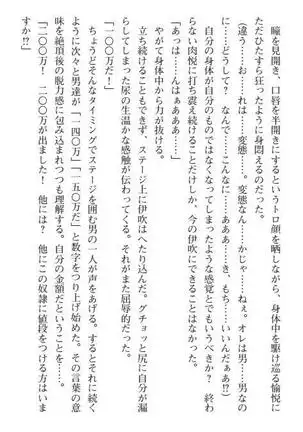 瞳を見開き、口唇を半開きにするというトロ顔を晒しながら、身体中を駆け巡る愉悦に
ただひたすら狂ったように身悶えるのだった。
(違う……お……れは……変態……変態なん……かじゃ……ねぇ。オレは男……男なの
に……どうして……? なんで……こんなに……ああぁ……き、もち……いいんだぁあ!?)
自分の身体が自分のものではなくなってしまったような感覚とでもいうべきか? 終わ
らない肉悦に打ち震え続けることだけしか、今の伊吹にできることはなかった。
「あっは……んはぁあああ……」
やがて身体から力が抜ける。
立ち続けることもできず、ステージ上に伊吹はへたり込んだ。グチョッと尻に自分が漏
らしてしまった尿の生温かな感触が伝わってくる。それがまた屈辱的だった。
「一〇〇万だ!」
ちょうどそんなタイミングでステージを囲む男の一人が声をあげる。するとそれに続く
ように次々と男達が「一四〇万」「一五〇万だ」と数字をつり上げ始めた。その言葉の意
味を絶頂後の脱力感に包み込まれつつも理解する。自分の金額だということを……。
「二〇〇万! 二〇〇万が出ました! 他には? 他にこの奴隷に値段をつける方はいま
すか!?」